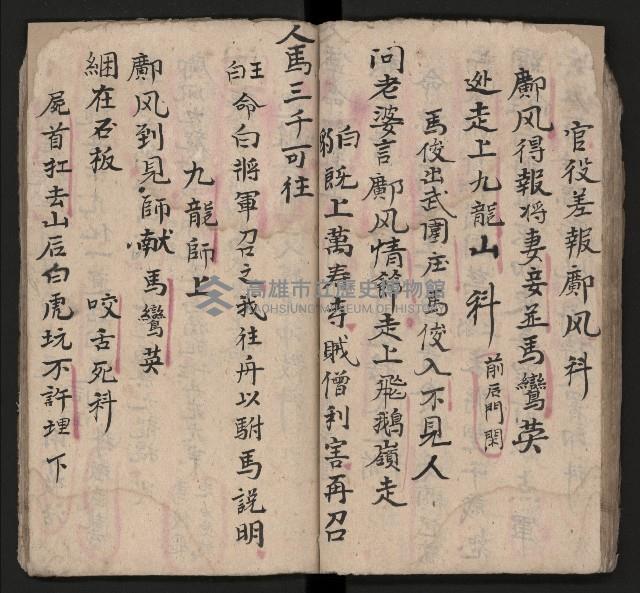 官役差報鄺风科
鄺风得報将妻妾並馬鸞英
处走上九龍山科 前后門閑
馬俊出武圍庄馬俊入不見人
问老婆言鄺风情節走上飛鵝嶺走
白 既上萬寿寺賊僧利害再召
人馬三千可往
王白 命白將軍召之我往舟以駙馬説明
九龍師上
鄺风到見師献馬鸞英
綑在石板 咬舌死科
屍首扛去山后白虎坑不許埋 下
高雄市立歷史博物館
KAOHSIUNG MUSEUM OF HISTORY